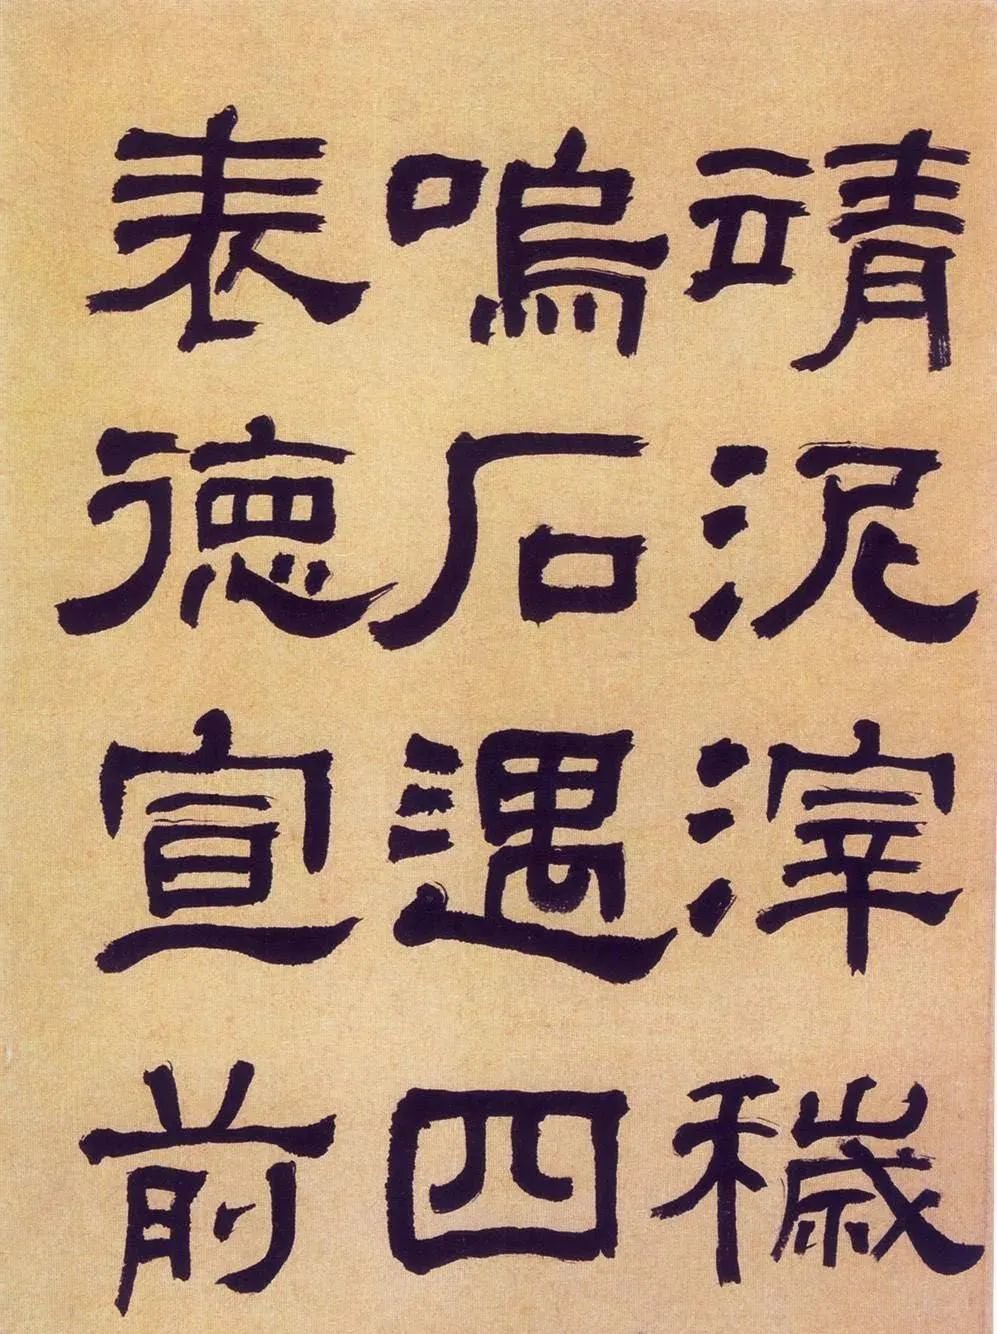 靖泥滓穢
鳴石遇四
表徳宣前